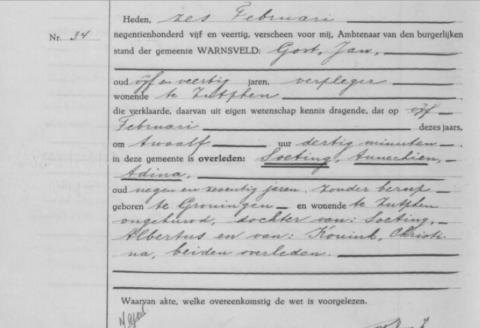 Heden, zes Februari
Nr. 34
negentienhonderd vijf en veertig, verscheen voor mij, Ambtenaar van den burgerlijken
stand der gemeente WARNSVELD: Gost, Jan,
oud vijf en veertig jaren, verpleger
wonende te Zutphen
die verklaarde, daarvan uit eigen wetenschap kennis dragende, dat op vijf
Februari dezes jaars,
om twaalf uur dertig minuten
in deze gemeente is overleden: Soeting, Annechien,
Adina,
oud negen en zeventig jaren, zonder beroep
geboren te Groningen en wonende te Zutphen
ongehuwd, dochter van: Soeting,
Albertus en van: Konink, Christi
na, beiden overleden.
Waarvan akte, welke overeenkomstig de wet is voorgelezen.